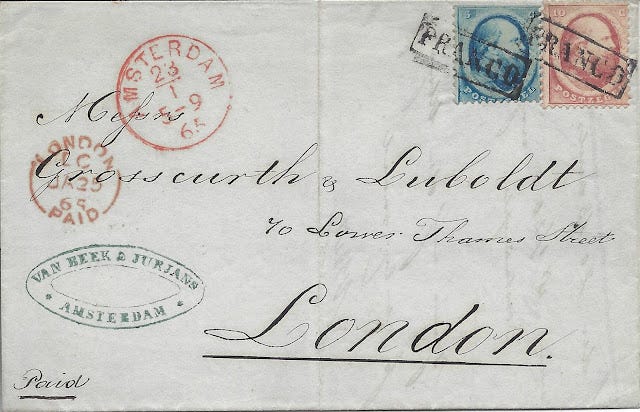 5
10
FRANCO
FRANCO
POSTZEGEL
POSTZEGEL
AMSTERDAM
23
1
5-9
65
Messrs
LONDON
C
JA25
65
PAID
Grosscurth & Luboldt
70 Lower Thames Street
VAN BEEK & JURJANS
AMSTERDAM
London.
Paid